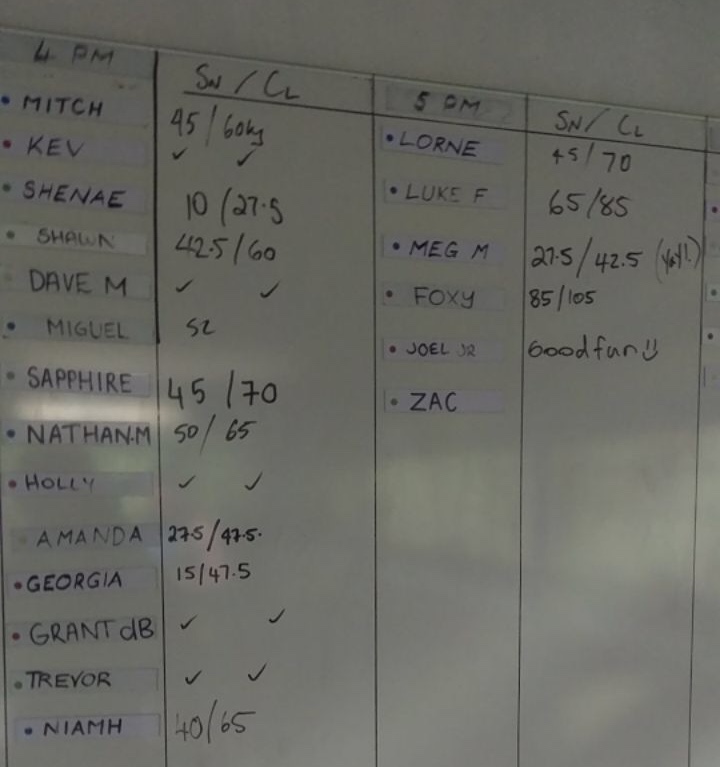 4 PM
SN / CL
MITCH 45/60kg
KEV ✓ ✓
SHENAE 10/27.5
SHAWN 42.5/60
DAVE M ✓ ✓
MIGUEL 52
SAPPHIRE 45/70
NATHAN.M 50/65
HOLLY ✓ ✓
AMANDA 27.5/47.5.
GEORGIA 15/47.5
GRANT dB ✓ ✓
TREVOR ✓ ✓
NIAMH 40/65
5 PM
SN/ CL
LORNE 45/70
LUKE F 65/85
MEG M 27.5/42.5
FOXY 85/105
JOEL JR Good fun
ZAC